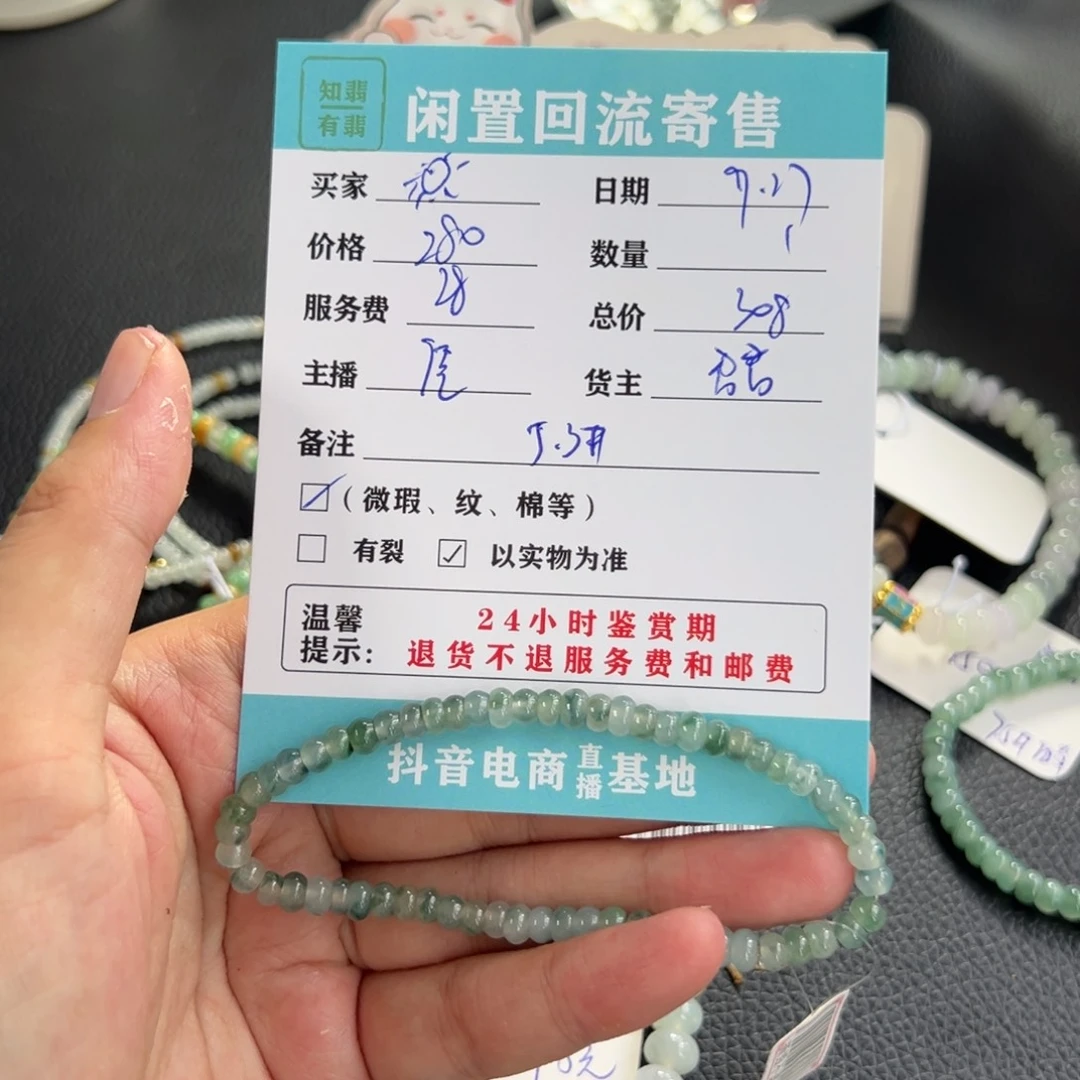 知翡
有翡
闲置回流寄售
买家 日期 9.17
价格 280 数量 1
服务费 28 总价 308
主播 货主
备注
(微瑕、纹、棉等)
有裂 ✓ 以实物为准
温馨提示: 24小时鉴赏期
退货不退服务费和邮费
抖音电商直播基地